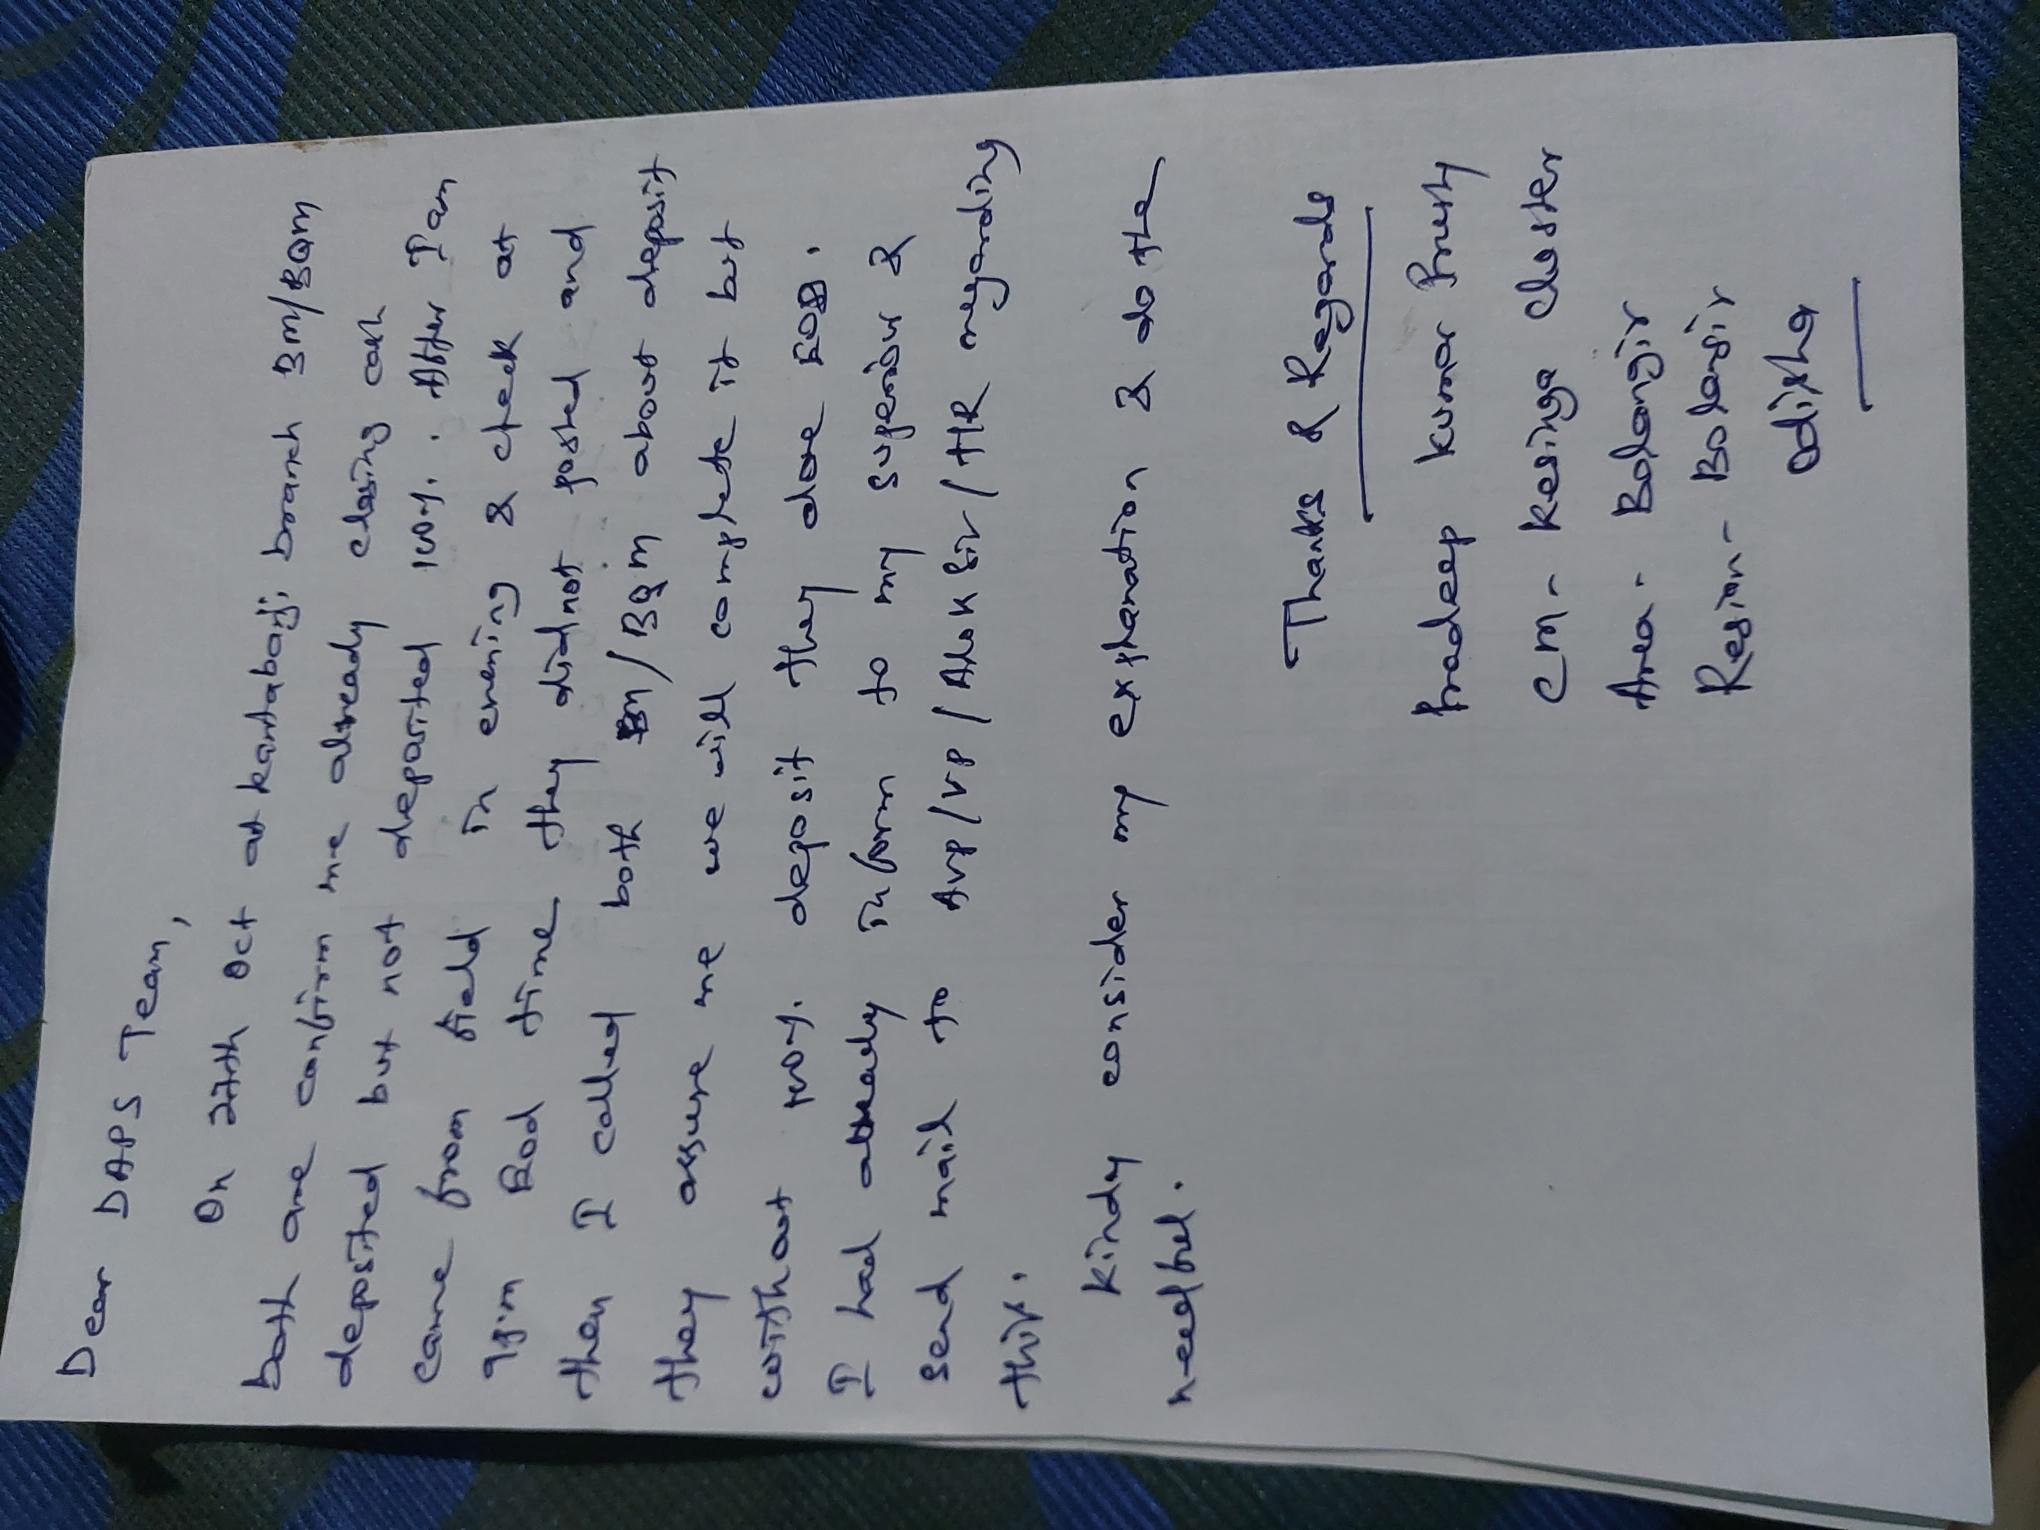 Dear DAPS Team,
On 27th Oct at kantabaji branch BM/BQM
both are confirm me already closing cash
deposited but not deposited 100%. After I am
came from field in evening & check at
9pm EOD time they did not posted and
then I called both BM/BQM about deposit
they assure me we will complete it but
without 100% deposit they done EOD.
I had already inform to my superior &
Send mail to AVP/VP/Alok Sir/HR regarding
this.
Kindy consider my explanation & do the
needful.
Thanks & Regards
Pradeep Kumar Prusty
CM- Kesinga Cluster
Area- Bolangir
Resion- Bolangir
Odisha